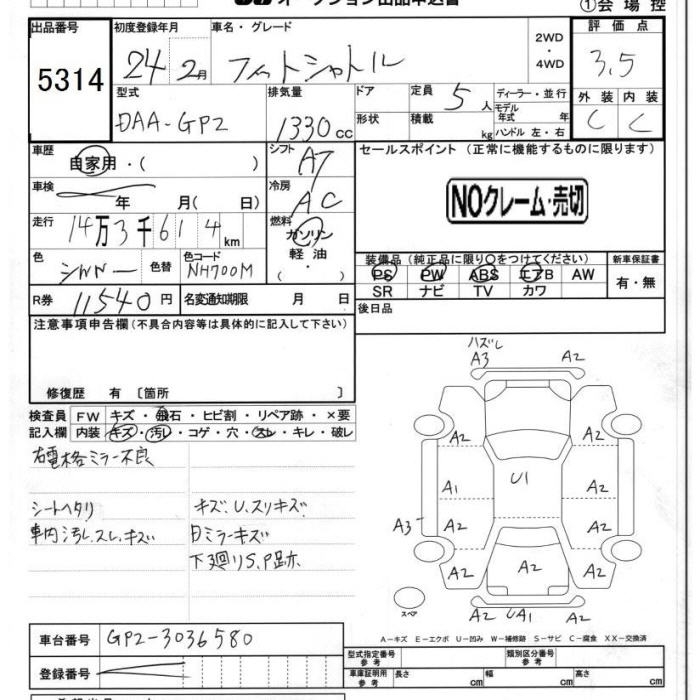 オークション出品申込書
①会場控
出品番号 初度登録年月 車名・グレード 2WD 評価点
5314 24年2月 フィットシャトル ・4WD 3.5
型式 排気量 ドア 定員 5人 ディーラー・並行 外装 内装
DAA-GP2 1330cc 形状 積載 kg モデル年式 年 ハンドル 左・右 C C
車歴 シフト セールスポイント (正常に機能するものに限ります)
自家用・( ) AT
車検 年 月( 日) 冷房 AC NOクレーム・売切
走行 14万3千614km 燃料 ガソリン
軽油
・
( )
色 シルバー 色替 色コード NH700M 装備品 (純正品に限り○をつけてください) 新車保証書
PS PW ABS エアB AW 有・無
SR ナビ TV カワ
R券 11540円 名変通知期限 月 日 後日品
注意事項申告欄 (不具合内容等は具体的に記入して下さい)
修復歴 有 〔箇所 〕
検査員 FW キズ・飛石・ヒビ割・リペア跡・×要
記入欄 内装 キズ・汚レ・コゲ・穴・スレ・キレ・破レ
右電格ミラー不良
シートヘタリ キズ、U、スリキズ
車内汚レ、スレ、キズ 日ミラーキズ
下廻りS、P跡
ハズレ
A3 A2
A2 A2
A1 U1 A2
A3 A2 A2
A2 A2 A2
スペア
A2 UA1 A2
A-キズ E-エクボ U-凹み W-補修跡 S-サビ C-腐食 XX-交換済
車台番号 GP2-3036580
型式指定番号 参考 類別区分番号 参考
登録番号
車庫証明用 参考 長さ cm 幅 cm 高さ cm